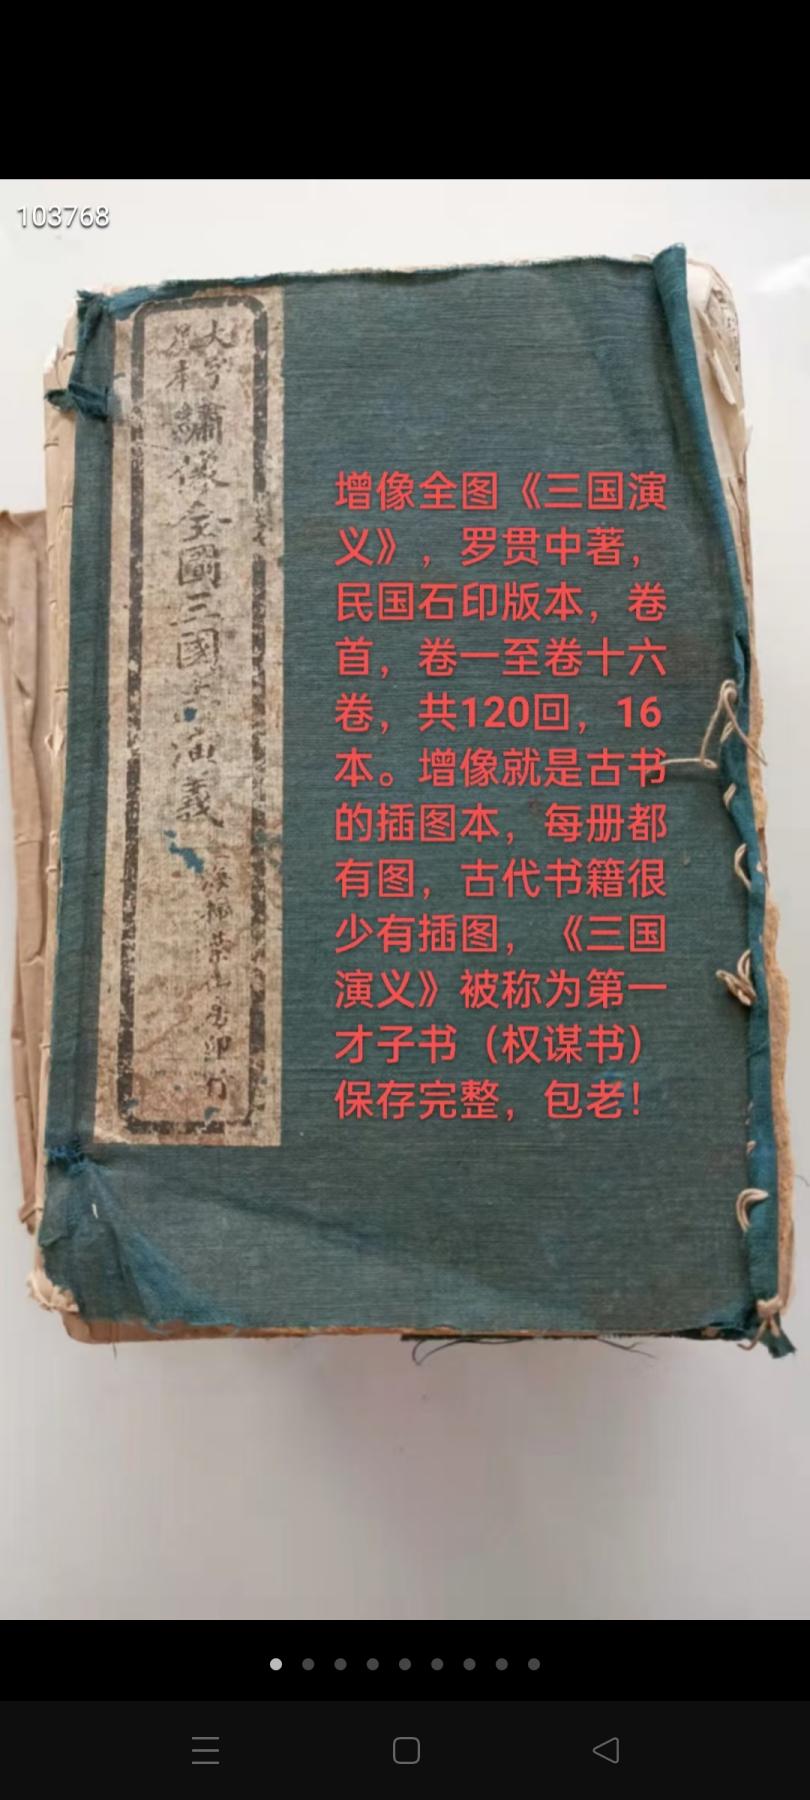 103768
大字
繡像全圖三國演義
掃葉山房印行
增像全图《三国演
义》，罗贯中著，
民国石印版本，卷
首，卷一至卷十六
卷，共120回，16
本。增像就是古书
的插图本，每册都
有图，古代书籍很
少有插图，《三国
演义》被称为第一
才子书（权谋书）
保存完整，包老！